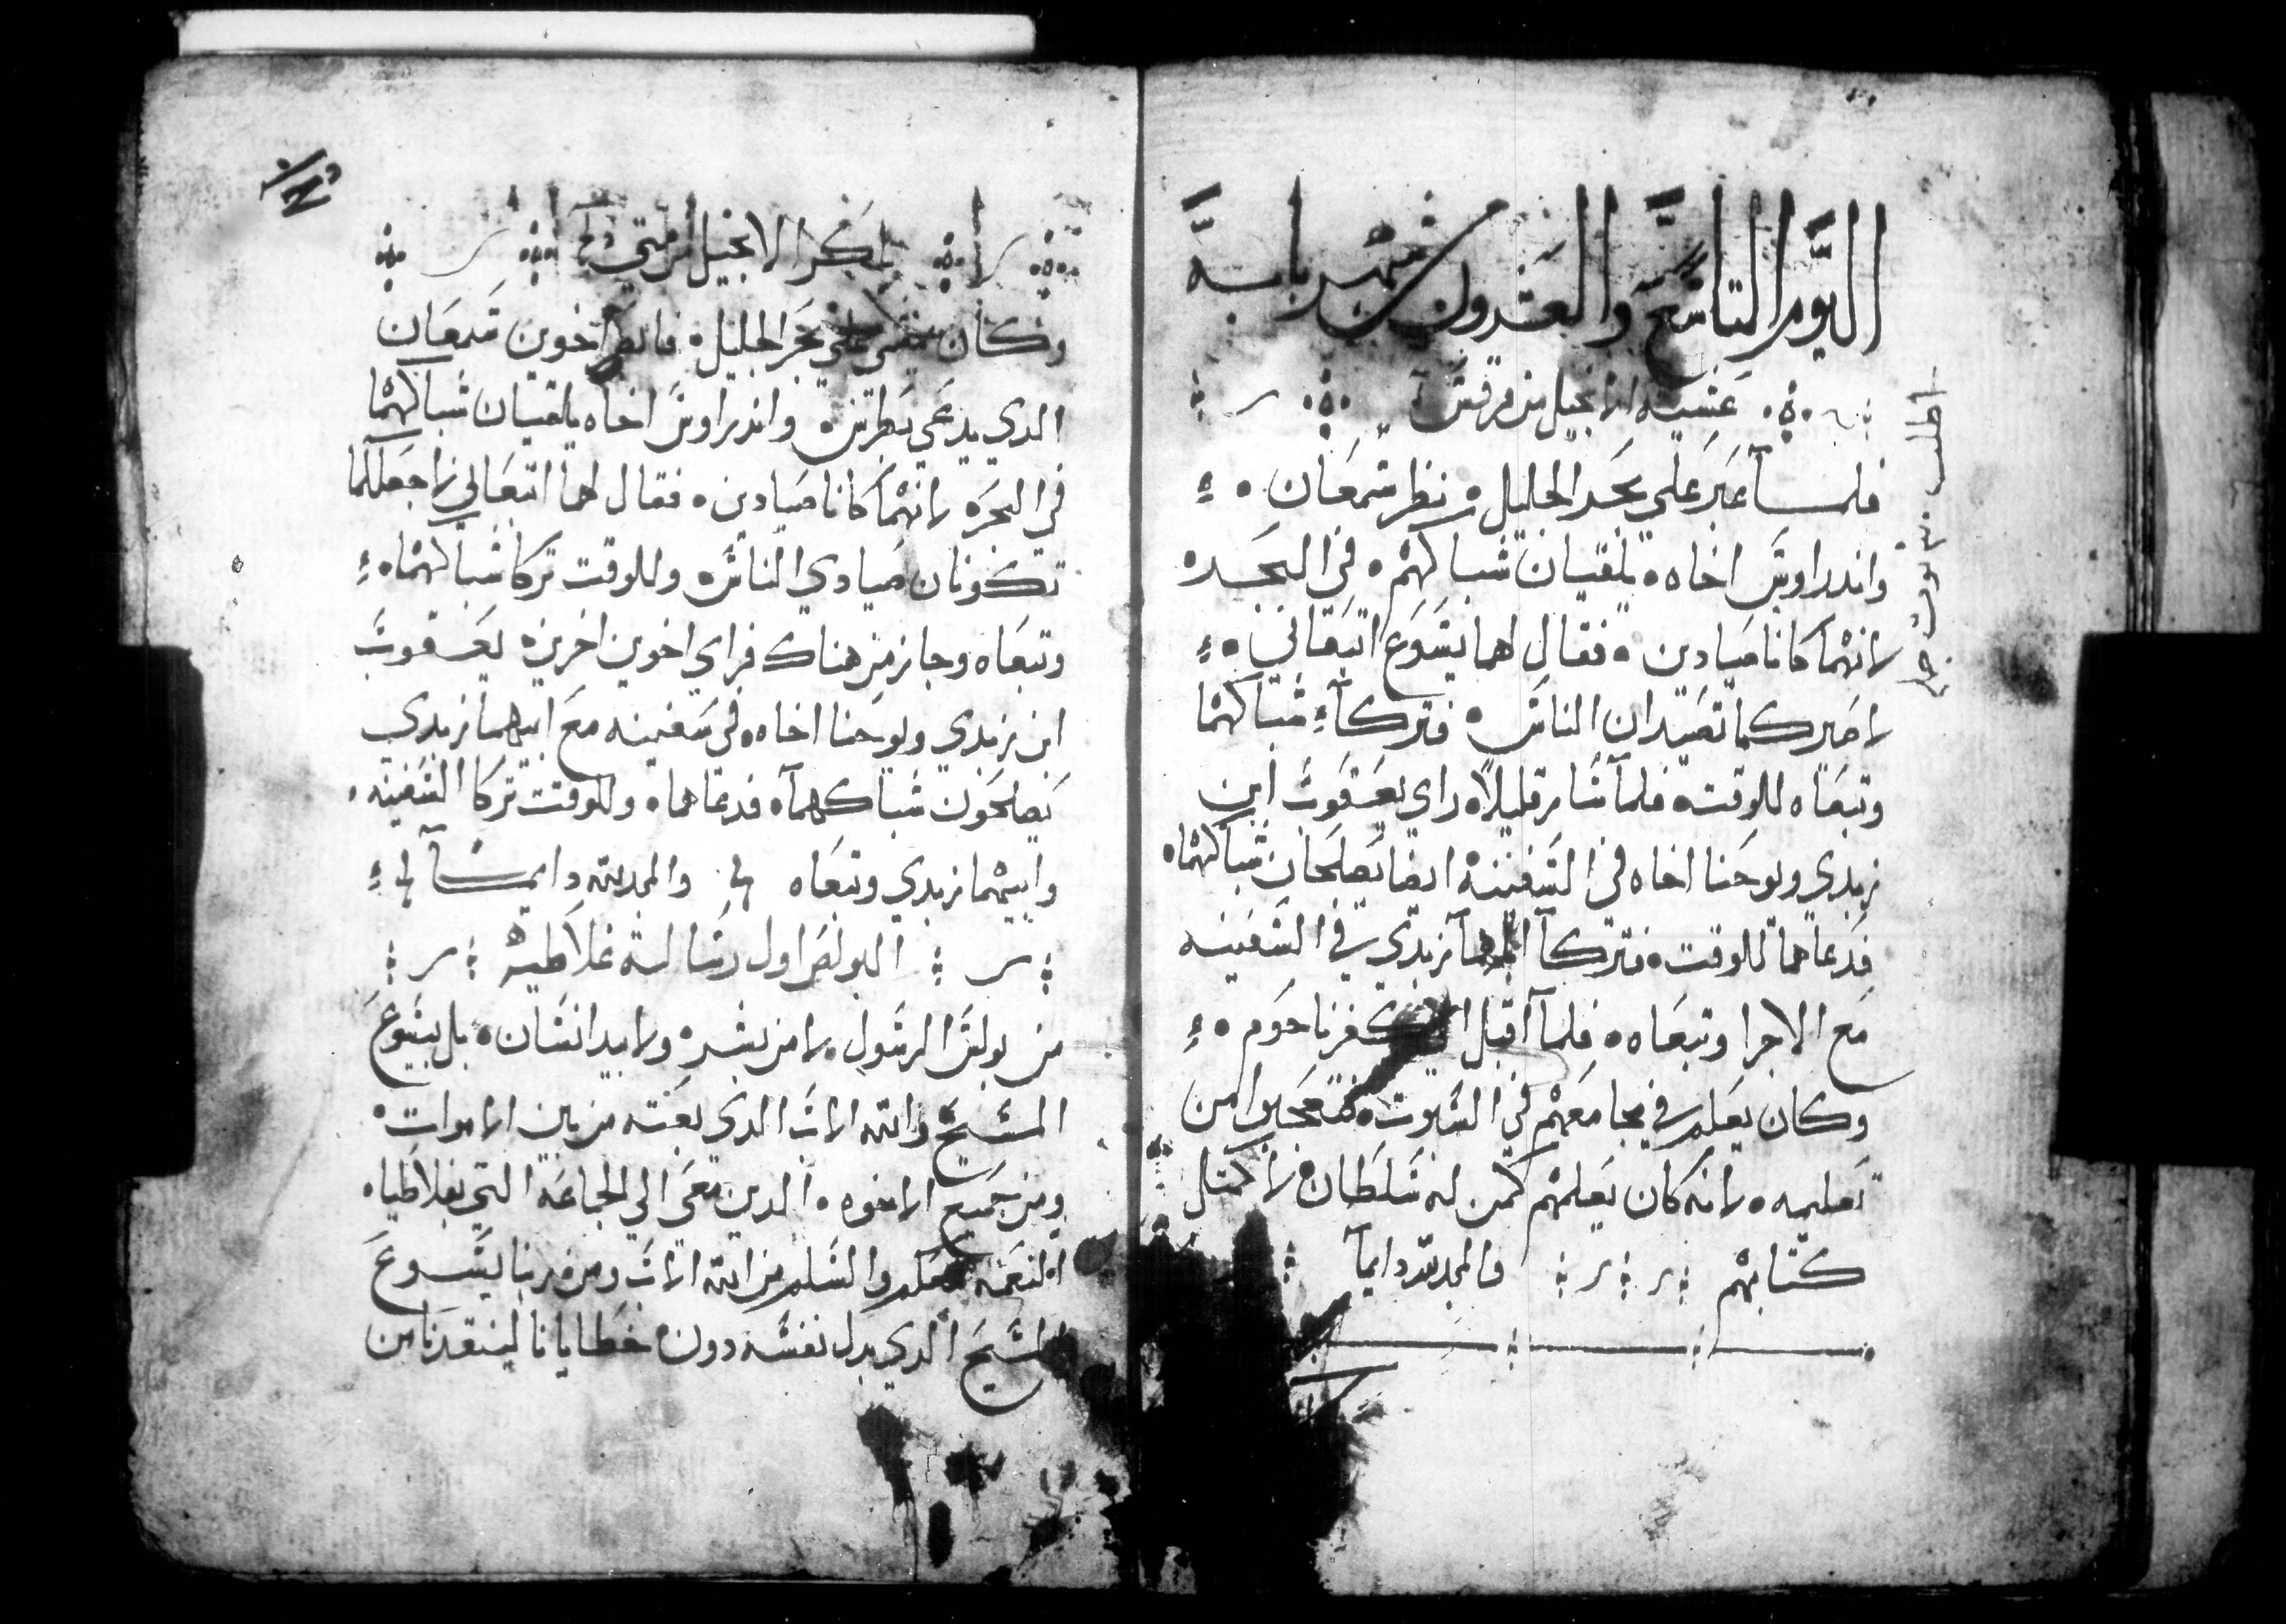 اليوم التاسع والعشرون من شهر بابه
عشيه الانجيل من مرقس
فلما عبر على بحر الجليل نظر شمعان
واندراوس اخاه يلقيان شباكهم في البحر
لانهما كانا صيادين فقال لهما يسوع اتبعاني
لاصيركما تصيدان الناس فتركا شباكهما
وتبعاه للوقت فلما سار قليلا راي يعقوب ابن
زبدي ويوحنا اخاه في السفينه ايضا يصلحان شباكهما
فدعاهما للوقت فتركا اباهما زبدي في السفينه
مع الاجرا وتبعاه فلما اقبل الي كفرناحوم
وكان يعلم في مجامعهم في السبوت فتعجبوا من
تعليمه لانه كان يعلمهم كمن له سلطان لا كمثل
كتابهم والمجد لله دايما
اطلب توت
باكر الانجيل من متي
وكان يمشي على بحر الجليل فابصر اخوين سمعان
الدي يدعي بطرس واندراوس اخاه يلقيان شباكهما
في البحر لانهما كانا صيادين فقال لهما اتبعاني لاجعلكما
تكونان صيادي الناس وللوقت تركا شباكهما
وتبعاه وجاز من هناك فراي اخوين اخرين يعقوب
ابن زبدي ويوحنا اخاه في سفينه مع ابيهما زبدي
يصلحون شباكهما فدعاهما وللوقت تركا السفينه
وابيهما زبدي وتبعاه والمجد لله دايما
البولص اول رساله غلاطيه
من بولس الرسول لا من بشر ولا بيد انسان بل بيسوع
المسيح والله الاب الدي بعته من بين الاموات
ومن جميع الاخوه الدين معي الي الجماعه التي بغلاطيا
النعمه معكم والسلم من الله الاب ومن ربنا يسوع
المسيح الدي بدل نفسه دون خطايانا لينقدنا من